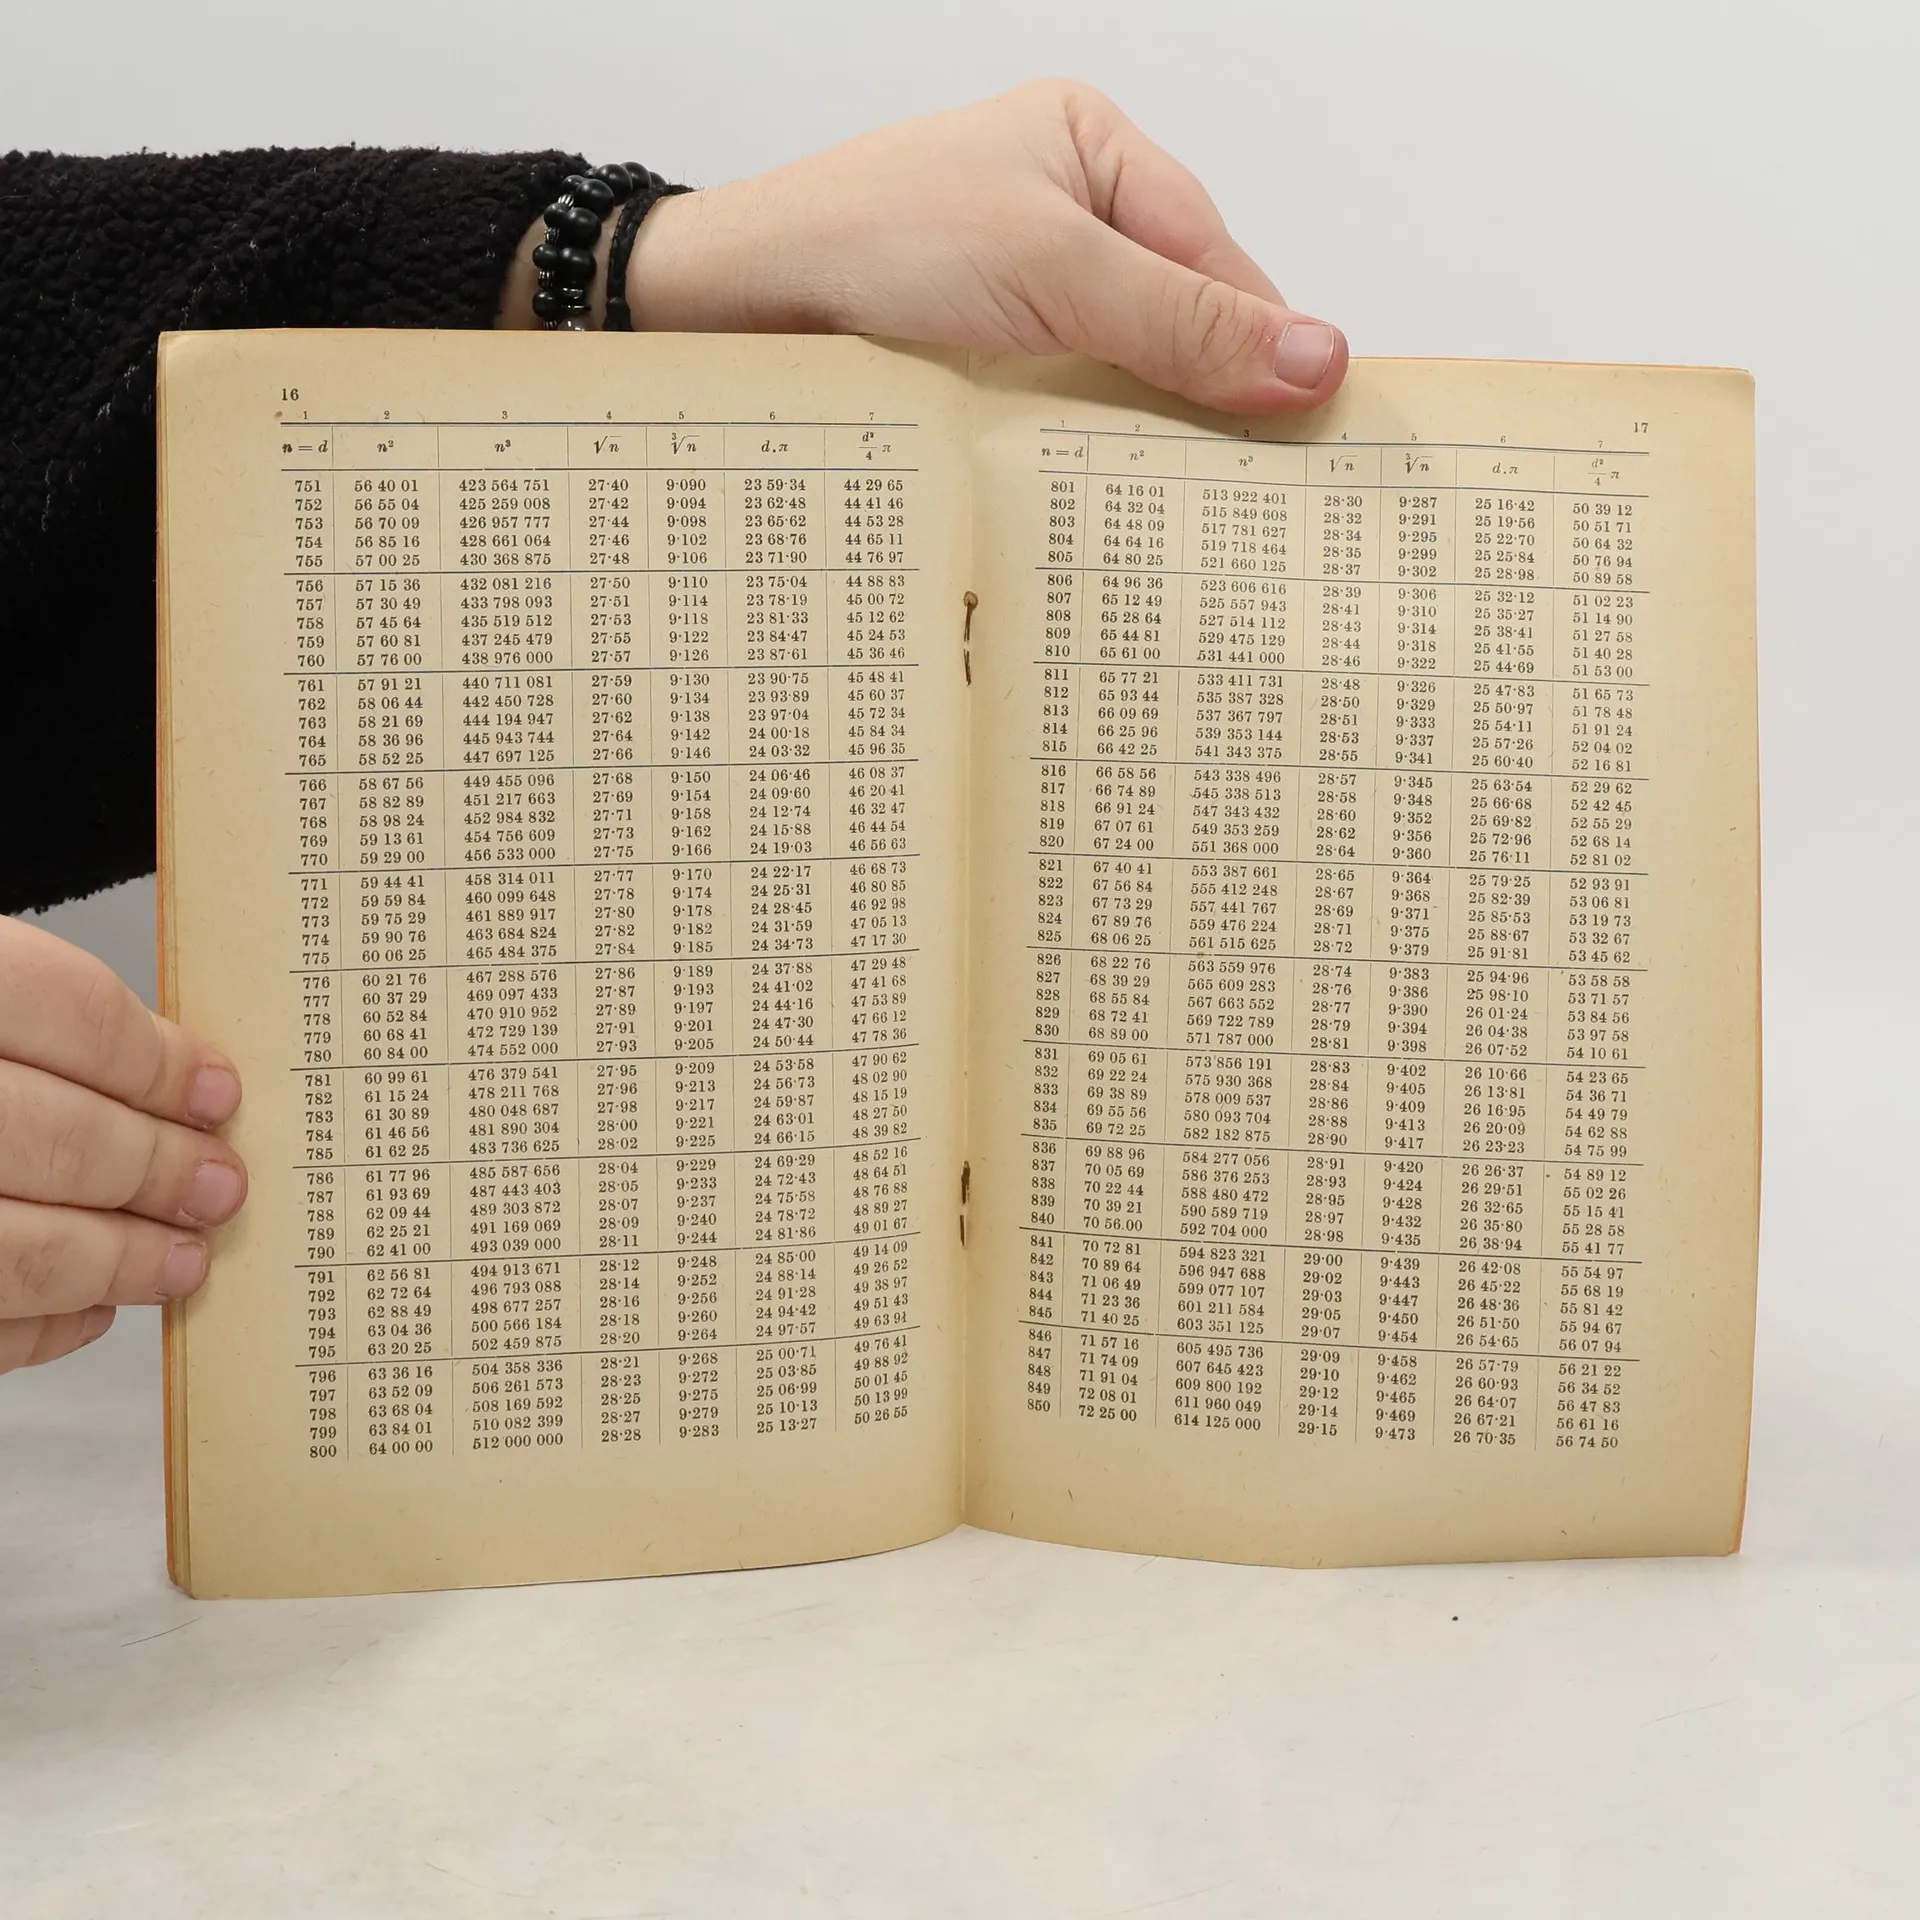 16
1 2 3 4 5 6 7
n = d n² n³ √n ∛n d.π d²/4 π
751 56 40 01 423 564 751 27·40 9·090 23 59·34 44 29 65
752 56 55 04 425 259 008 27·42 9·094 23 62·48 44 41 46
753 56 70 09 426 957 777 27·44 9·098 23 65·62 44 53 28
754 56 85 16 428 661 064 27·46 9·102 23 68·76 44 65 11
755 57 00 25 430 368 875 27·48 9·106 23 71·90 44 76 97
756 57 15 36 432 081 216 27·50 9·110 23 75·04 44 88 83
757 57 30 49 433 798 093 27·51 9·114 23 78·19 45 00 72
758 57 45 64 435 519 512 27·53 9·118 23 81·33 45 12 62
759 57 60 81 437 245 479 27·55 9·122 23 84·47 45 24 53
760 57 76 00 438 976 000 27·57 9·126 23 87·61 45 36 46
761 57 91 21 440 711 081 27·59 9·130 23 90·75 45 48 41
762 58 06 44 442 450 728 27·60 9·134 23 93·89 45 60 37
763 58 21 69 444 194 947 27·62 9·138 23 97·04 45 72 34
764 58 36 96 445 943 744 27·64 9·142 24 00·18 45 84 34
765 58 52 25 447 697 125 27·66 9·146 24 03·32 45 96 35
766 58 67 56 449 455 096 27·68 9·150 24 06·46 46 08 37
767 58 82 89 451 217 663 27·69 9·154 24 09·60 46 20 41
768 58 98 24 452 984 832 27·71 9·158 24 12·74 46 32 47
769 59 13 61 454 756 609 27·73 9·162 24 15·88 46 44 54
770 59 29 00 456 533 000 27·75 9·166 24 19·03 46 56 63
771 59 44 41 458 314 011 27·77 9·170 24 22·17 46 68 73
772 59 59 84 460 099 648 27·78 9·174 24 25·31 46 80 85
773 59 75 29 461 889 917 27·80 9·178 24 28·45 46 92 98
774 59 90 76 463 684 824 27·82 9·182 24 31·59 47 05 13
775 60 06 25 465 484 375 27·84 9·185 24 34·73 47 17 30
776 60 21 76 467 288 576 27·86 9·189 24 37·88 47 29 48
777 60 37 29 469 097 433 27·87 9·193 24 41·02 47 41 68
778 60 52 84 470 910 952 27·89 9·197 24 44·16 47 53 89
779 60 68 41 472 729 139 27·91 9·201 24 47·30 47 66 12
780 60 84 00 474 552 000 27·93 9·205 24 50·44 47 78 36
781 60 99 61 476 379 541 27·95 9·209 24 53·58 47 90 62
782 61 15 24 478 211 768 27·96 9·213 24 56·73 48 02 90
783 61 30 89 480 048 687 27·98 9·217 24 59·87 48 15 19
784 61 46 56 481 890 304 28·00 9·221 24 63·01 48 27 50
785 61 62 25 483 736 625 28·02 9·225 24 66·15 48 39 82
786 61 77 96 485 587 656 28·04 9·229 24 69·29 48 52 16
787 61 93 69 487 443 403 28·05 9·233 24 72·43 48 64 51
788 62 09 44 489 303 872 28·07 9·237 24 75·58 48 76 88
789 62 25 21 491 169 069 28·09 9·240 24 78·72 48 89 27
790 62 41 00 493 039 000 28·11 9·244 24 81·86 49 01 67
791 62 56 81 494 913 671 28·12 9·248 24 85·00 49 14 09
792 62 72 64 496 793 088 28·14 9·252 24 88·14 49 26 52
793 62 88 49 498 677 257 28·16 9·256 24 91·28 49 38 97
794 63 04 36 500 566 184 28·18 9·260 24 94·42 49 51 43
795 63 20 25 502 459 875 28·20 9·264 24 97·57 49 63 91
796 63 36 16 504 358 336 28·21 9·268 25 00·71 49 76 41
797 63 52 09 506 261 573 28·23 9·272 25 03·85 49 88 92
798 63 68 04 508 169 592 28·25 9·275 25 06·99 50 01 45
799 63 84 01 510 082 399 28·27 9·279 25 10·13 50 13 99
800 64 00 00 512 000 000 28·28 9·283 25 13·27 50 26 55
17
1 2 3 4 5 6 7
n = d n² n³ √n ∛n d.π d²/4 π
801 64 16 01 513 922 401 28·30 9·287 25 16·42 50 39 12
802 64 32 04 515 849 608 28·32 9·291 25 19·56 50 51 71
803 64 48 09 517 781 627 28·34 9·295 25 22·70 50 64 32
804 64 64 16 519 718 464 28·35 9·299 25 25·84 50 76 94
805 64 80 25 521 660 125 28·37 9·302 25 28·98 50 89 58
806 64 96 36 523 606 616 28·39 9·306 25 32·12 51 02 23
807 65 12 49 525 557 943 28·41 9·310 25 35·27 51 14 90
808 65 28 64 527 514 112 28·43 9·314 25 38·41 51 27 58
809 65 44 81 529 475 129 28·44 9·318 25 41·55 51 40 28
810 65 61 00 531 441 000 28·46 9·322 25 44·69 51 53 00
811 65 77 21 533 411 731 28·48 9·326 25 47·83 51 65 73
812 65 93 44 535 387 328 28·50 9·329 25 50·97 51 78 48
813 66 09 69 537 367 797 28·51 9·333 25 54·11 51 91 24
814 66 25 96 539 353 144 28·53 9·337 25 57·26 52 04 02
815 66 42 25 541 343 375 28·55 9·341 25 60·40 52 16 81
816 66 58 56 543 338 496 28·57 9·345 25 63·54 52 29 62
817 66 74 89 545 338 513 28·58 9·348 25 66·68 52 42 45
818 66 91 24 547 343 432 28·60 9·352 25 69·82 52 55 29
819 67 07 61 549 353 259 28·62 9·356 25 72·96 52 68 14
820 67 24 00 551 368 000 28·64 9·360 25 76·11 52 81 02
821 67 40 41 553 387 661 28·65 9·364 25 79·25 52 93 91
822 67 56 84 555 412 248 28·67 9·368 25 82·39 53 06 81
823 67 73 29 557 441 767 28·69 9·371 25 85·53 53 19 73
824 67 89 76 559 476 224 28·71 9·375 25 88·67 53 32 67
825 68 06 25 561 515 625 28·72 9·379 25 91·81 53 45 62
826 68 22 76 563 559 976 28·74 9·383 25 94·96 53 58 58
827 68 39 29 565 609 283 28·76 9·386 25 98·10 53 71 57
828 68 55 84 567 663 552 28·77 9·390 26 01·24 53 84 56
829 68 72 41 569 722 789 28·79 9·394 26 04·38 53 97 58
830 68 89 00 571 787 000 28·81 9·398 26 07·52 54 10 61
831 69 05 61 573 856 191 28·83 9·402 26 10·66 54 23 65
832 69 22 24 575 930 368 28·84 9·405 26 13·81 54 36 71
833 69 38 89 578 009 537 28·86 9·409 26 16·95 54 49 79
834 69 55 56 580 093 704 28·88 9·413 26 20·09 54 62 88
835 69 72 25 582 182 875 28·90 9·417 26 23·23 54 75 99
836 69 88 96 584 277 056 28·91 9·420 26 26·37 54 89 12
837 70 05 69 586 376 253 28·93 9·424 26 29·51 55 02 26
838 70 22 44 588 480 472 28·95 9·428 26 32·65 55 15 41
839 70 39 21 590 589 719 28·97 9·432 26 35·80 55 28 58
840 70 56.00 592 704 000 28·98 9·435 26 38·94 55 41 77
841 70 72 81 594 823 321 29·00 9·439 26 42·08 55 54 97
842 70 89 64 596 947 688 29·02 9·443 26 45·22 55 68 19
843 71 06 49 599 077 107 29·03 9·447 26 48·36 55 81 42
844 71 23 36 601 211 584 29·05 9·450 26 51·50 55 94 67
845 71 40 25 603 351 125 29·07 9·454 26 54·65 56 07 94
846 71 57 16 605 495 736 29·09 9·458 26 57·79 56 21 22
847 71 74 09 607 645 423 29·10 9·462 26 60·93 56 34 52
848 71 91 04 609 800 192 29·12 9·465 26 64·07 56 47 83
849 72 08 01 611 960 049 29·14 9·469 26 67·21 56 61 16
850 72 25 00 614 125 000 29·15 9·473 26 70·35 56 74 50